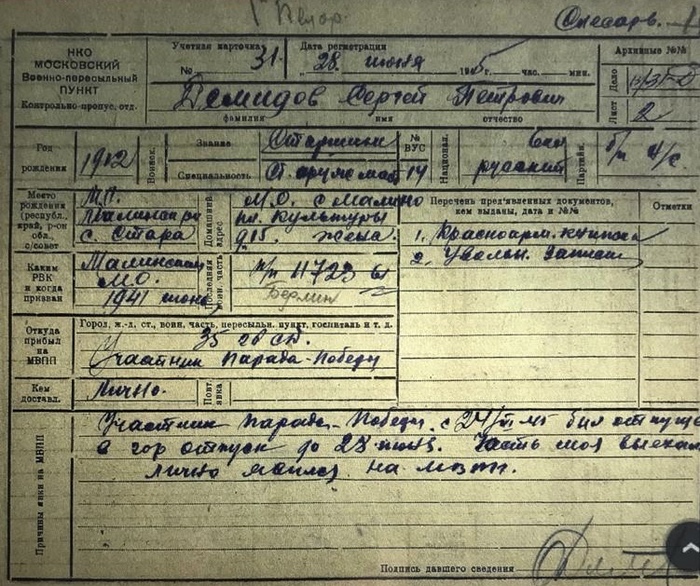 Слесарь.
НКО
МОСКОВСКИЙ
Военно-пересыльный
ПУНКТ
Контрольно-пропус. отд.
Учетная карточка
№ 31.
Дата регистрации
„28" июня 1945г. час. мин.
Архивные №№
Дело
Лист 2
Демидов Сергей Петрович
фамилия имя отчество
Год рождения
1912
Воинск.
Звание Старшина
Специальность Ст. оруж. маст
№ ВУС
14
Национал.
русский
Партийн.
б/п
Место рождения (республ. край, р-он обл., с/совет
М.О.
Малинский
с. Стара
Домашний адрес
М.О. с Малино
пл. Культуры
д15. жена.
Перечень предъявленных документов, кем выданы, дата и №№
Отметки
1. Красноарм. книжка
2. Увольн. Записка
Каким РВК и когда призван
Малинским
М.О.
1941 июнь
Последняя воин. часть
п/п 11723
Берлин
Откуда прибыл на МВПП
Город, ж.-д. ст., воин. часть, пересыльн. пункт, госпиталь и т. д.
35 гв сд.
Участник Парада-Победы
Кем доставл.
Лично.
Повт. явка
Причины явки на МВПП
Участник Парада-Победы. с 24/VI 45 был отпущен
в гор отпуск до 28 июня. Часть моя выехала
лично явился на МВПП.
Подпись давшего сведения